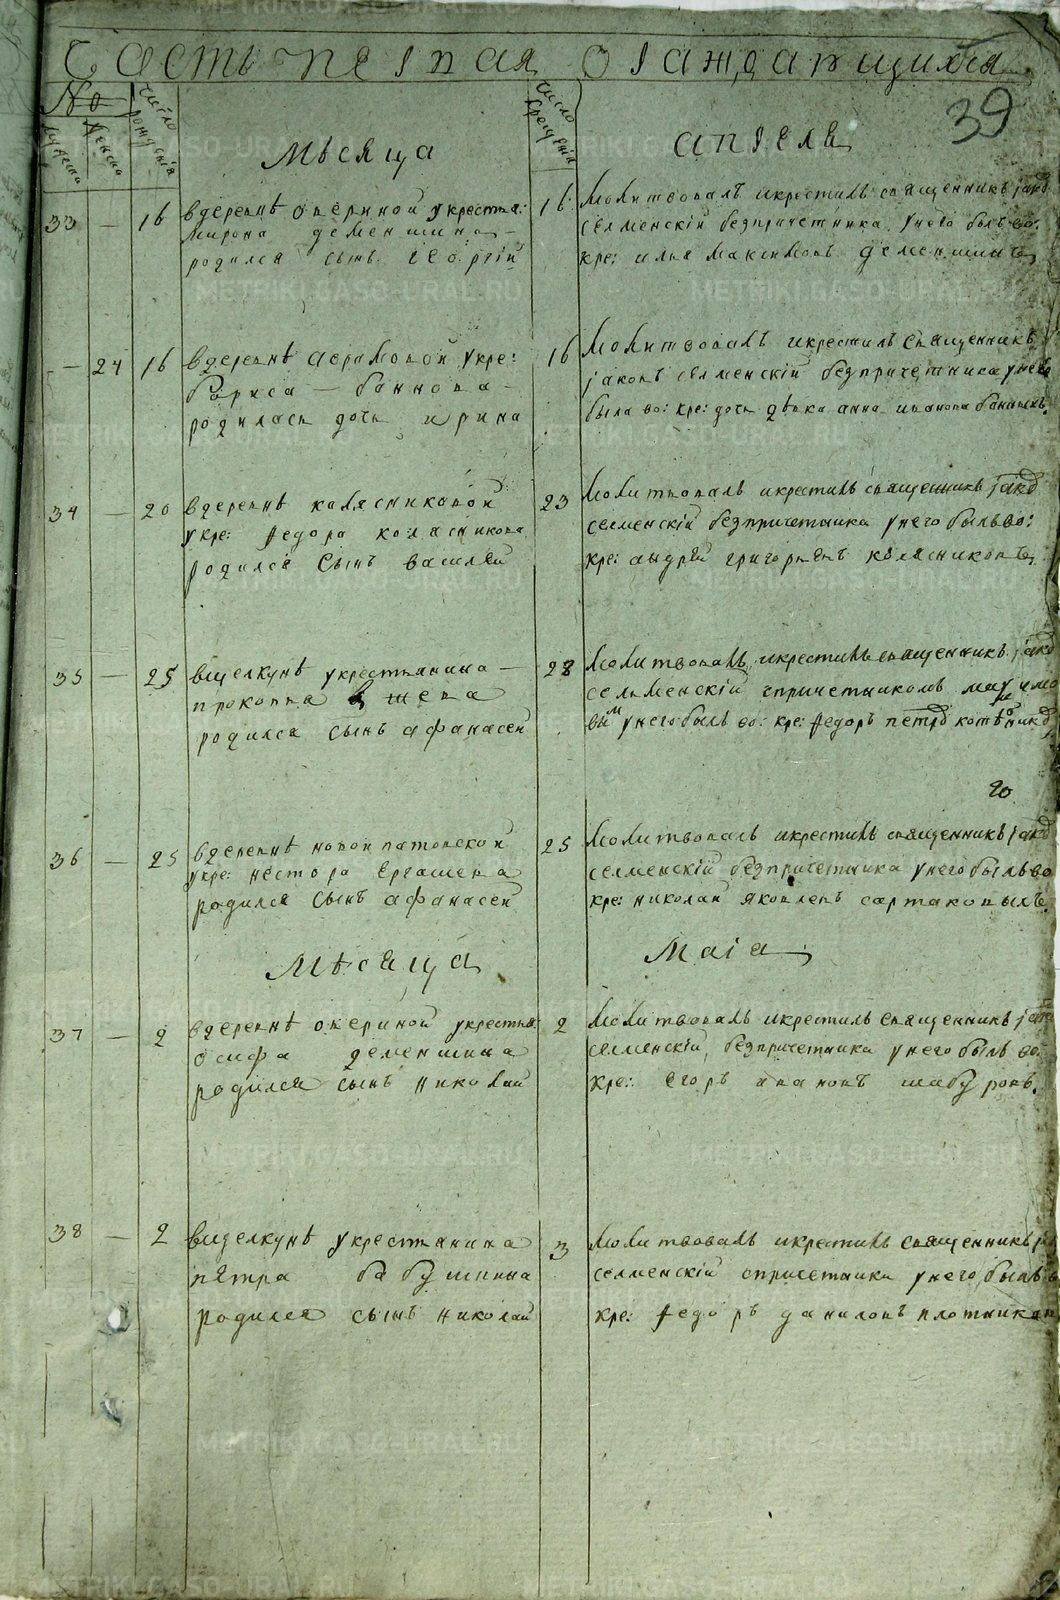 Часть первая о раждающихся
39
№
мужеска
женска
число рождения
Мѣсяца
число крещения
апреля
33 — 16 вдеревнѣ овериной укрестья:
мирона деменшина —
родился сынъ георгій
16 молитвовалъ икрестилъ священникъ
селменскій безпричетника унего былъ во:
кре: илья максимовъ деменшинъ
— 24 16 вдеревнѣ абрамовой укре:
бориса — баннова —
родилась дочь ирина
16 молитвовалъ икрестилъ священникъ
іаковъ селменскій безпричетника унево
была во: кре: дочь дѣвка анна иванова
34 — 20 вдеревнѣ калясниковой
укре: федора колясникова
родился сынъ василей
23 молитвовалъ икрестилъ священникъ
селменскій безпричетника унего былъ во:
кре: андрей григорьевъ колясниковъ
35 — 25 вщелкунѣ укрестьянина —
прокопья
родился сынъ афанасей
28 молитвовалъ икрестилъ священникъ
селменскій спричетникомъ
унего былъ во: кре: федоръ
36 — 25 вдеревнѣ новоипатовской
укре: нестора ергашева
родился сынъ афанасей
25 молитвовалъ икрестилъ священникъ
селменскій безпричетника унего былъ во
кре: николай яковлевъ сартаковыхъ
Мѣсяца Маія
37 — 2 вдеревнѣ овериной укрестья:
осифа деменшина
родился сынъ николай
2 молитвовалъ икрестилъ священникъ
селменскій безпричетника унего былъ во:
кре: егоръ шабуровъ
38 — 2 вщелкунѣ укрестьянина
петра бабушкина
родился сынъ николай
3 молитвовалъ икрестилъ священникъ
селменскій спричетники унего былъ
кре: федоръ даниловъ плотников
METRIKI.GASO-URAL.RU